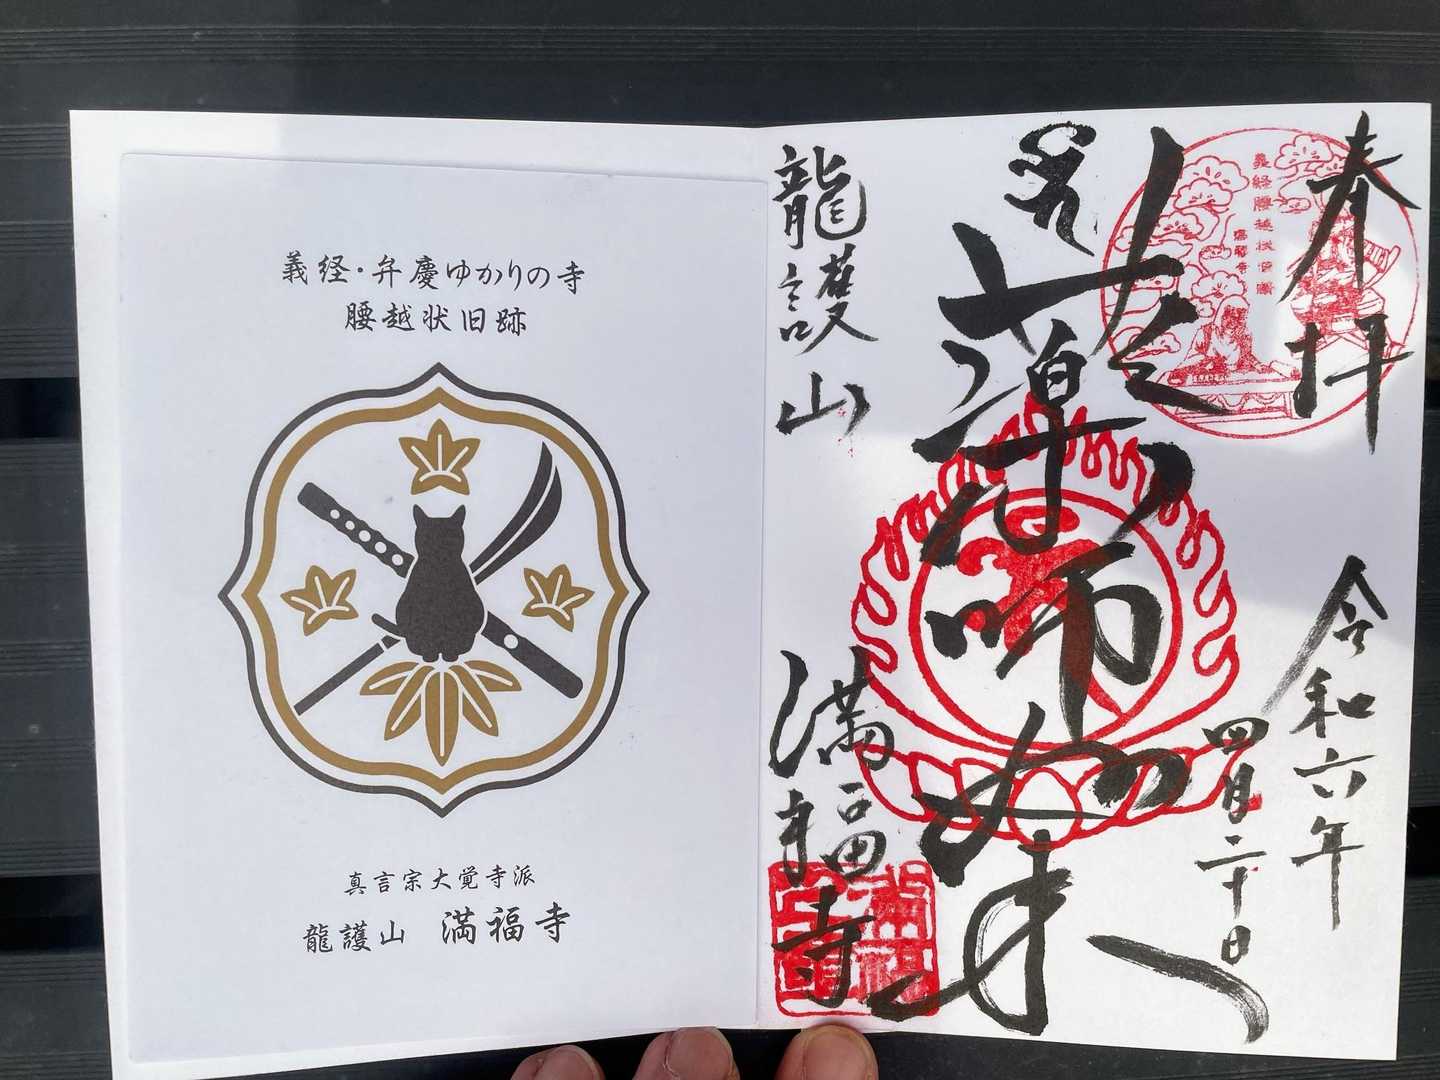 義経・弁慶ゆかりの寺
腰越状旧跡
真言宗大覚寺派
龍護山 満福寺
奉拝
令和六年
四月二十日
義経腰越状旧蹟
満福寺
薬師如来
龍護山
満福寺